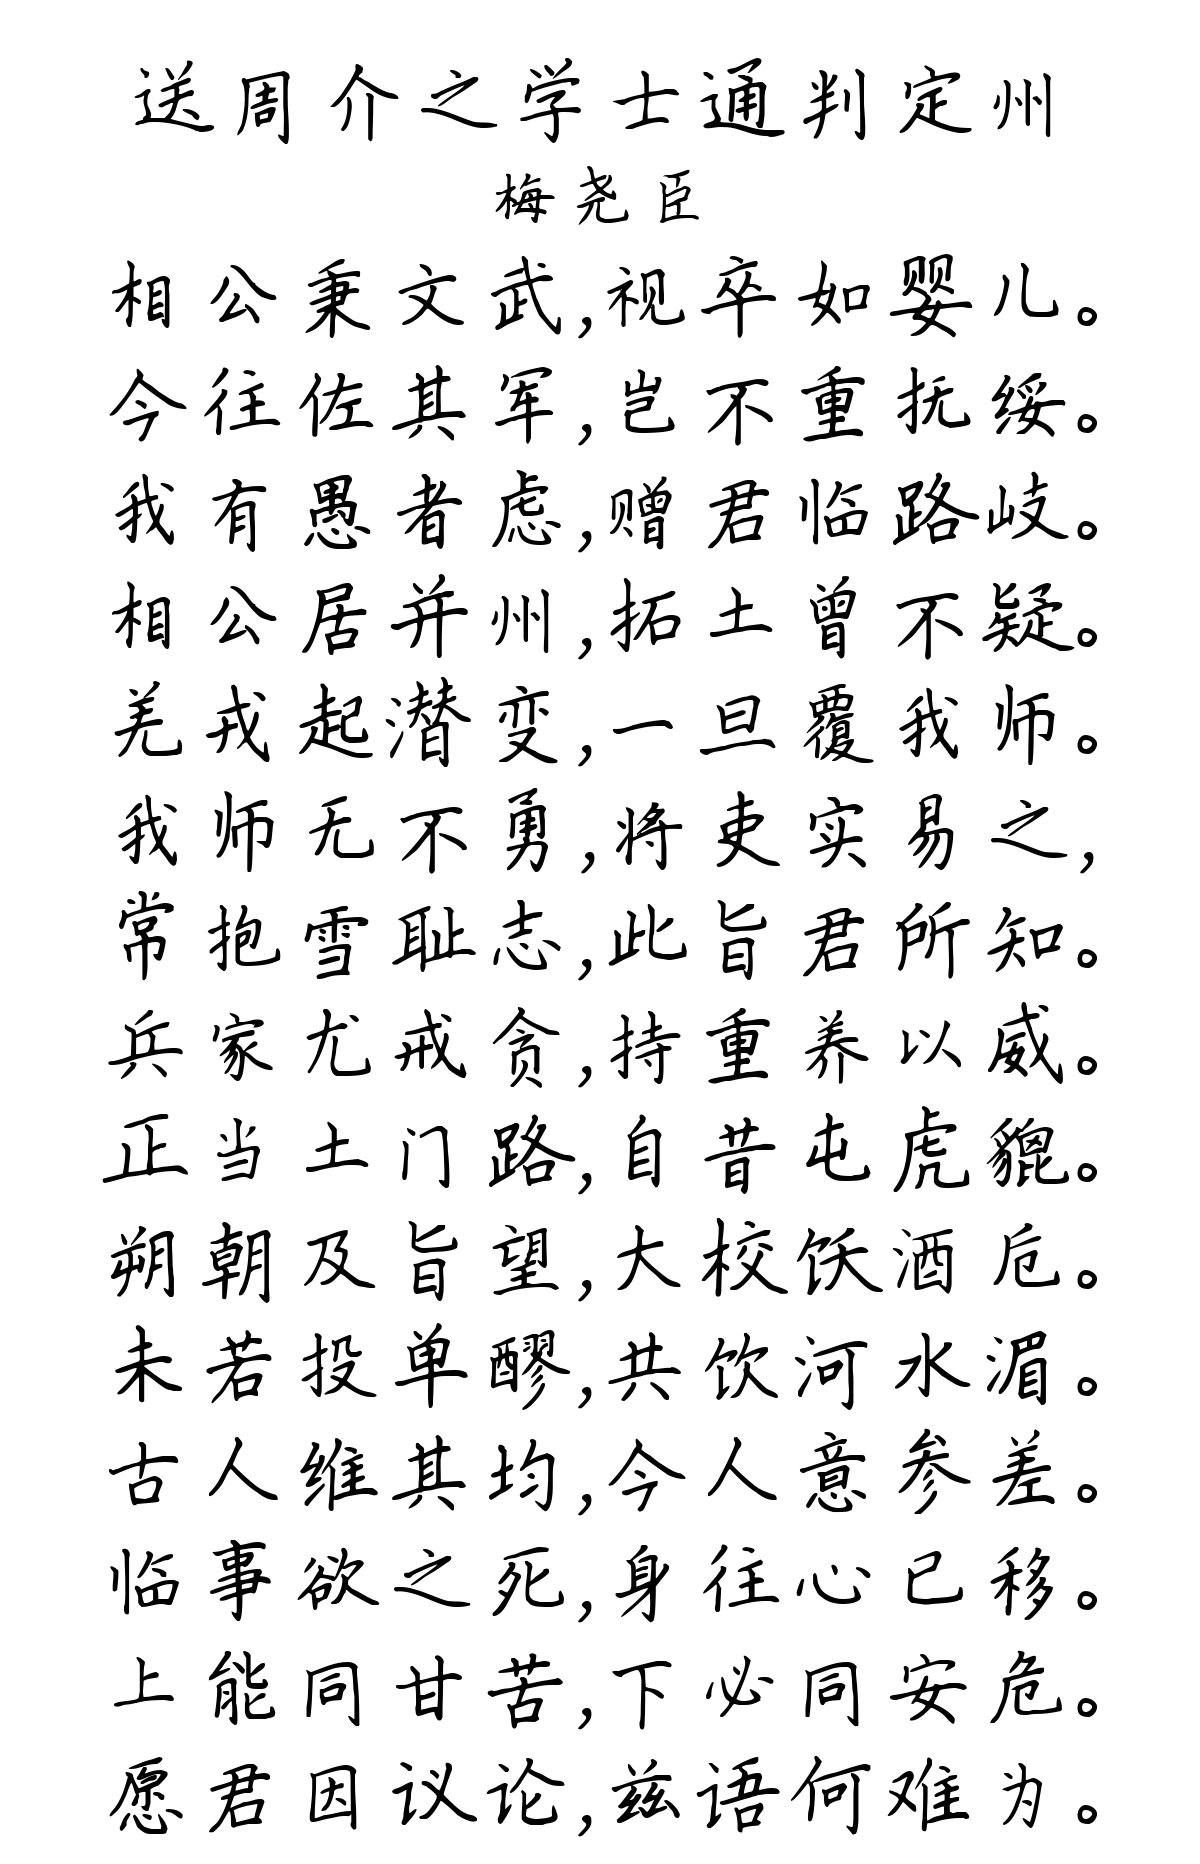 送周介之学士通判定州
梅尧臣
相公秉文武,视卒如婴儿。
今往佐其军,岂不重抚绥。
我有愚者虑,赠君临路岐。
相公居并州,拓土曾不疑。
羌戎起潜变,一旦覆我师。
我师无不勇,将吏实易之,
常抱雪耻志,此旨君所知。
兵家尤戒贪,持重养以威。
正当土门路,自昔屯虎貔。
朔朝及旨望,大校饫酒卮。
未若投单醪,共饮河水湄。
古人维其均,今人意参差。
临事欲之死,身往心已移。
上能同甘苦,下必同安危。
愿君因议论,兹语何难为。